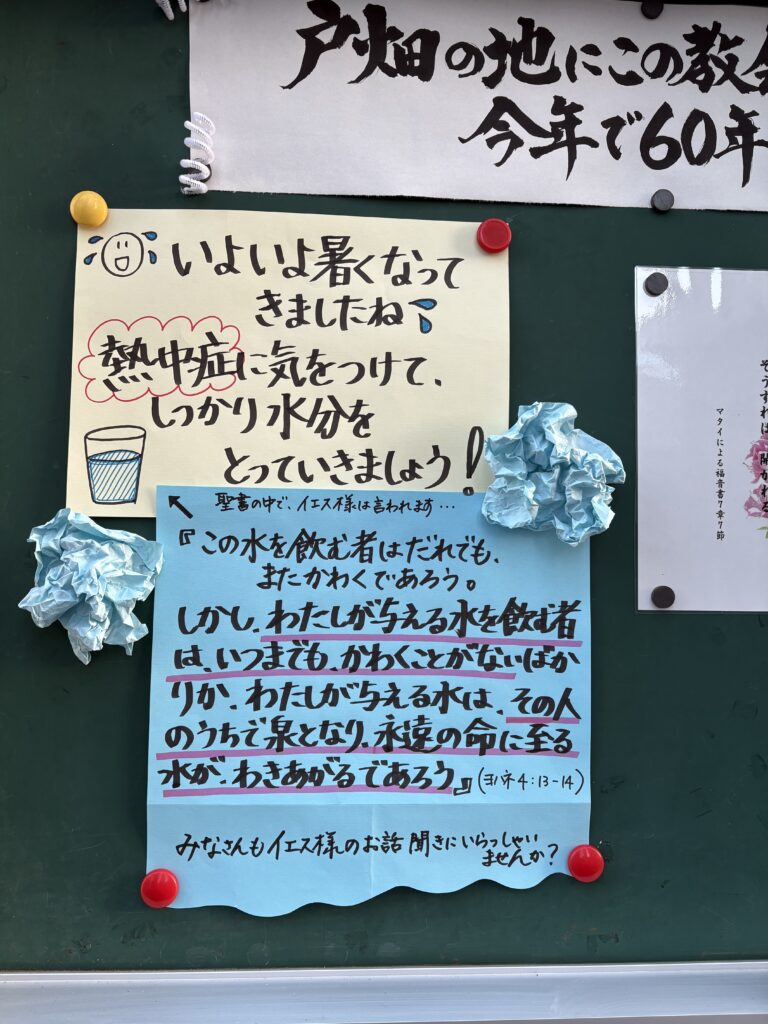 戸畑の地にこの教会
今年で60年
いよいよ暑くなって
きましたね
熱中症に気をつけて、
しっかり水分を
とっていきましょう!
聖書の中で、イエス様は言われます…
『この水を飲む者はだれでも、
またかわくであろう。
しかし、わたしが与える水を飲む者
は、いつまでも、かわくことがないばか
りか、わたしが与える水は、その人
のうちで泉となり、永遠の命に至る
水が、わきあがるであろう』(ヨハネ4:13-14)
みなさんもイエス様のお話聞きにいらっしゃい
ませんか?
そうすれば、開かれる
マタイによる福音書7章7節